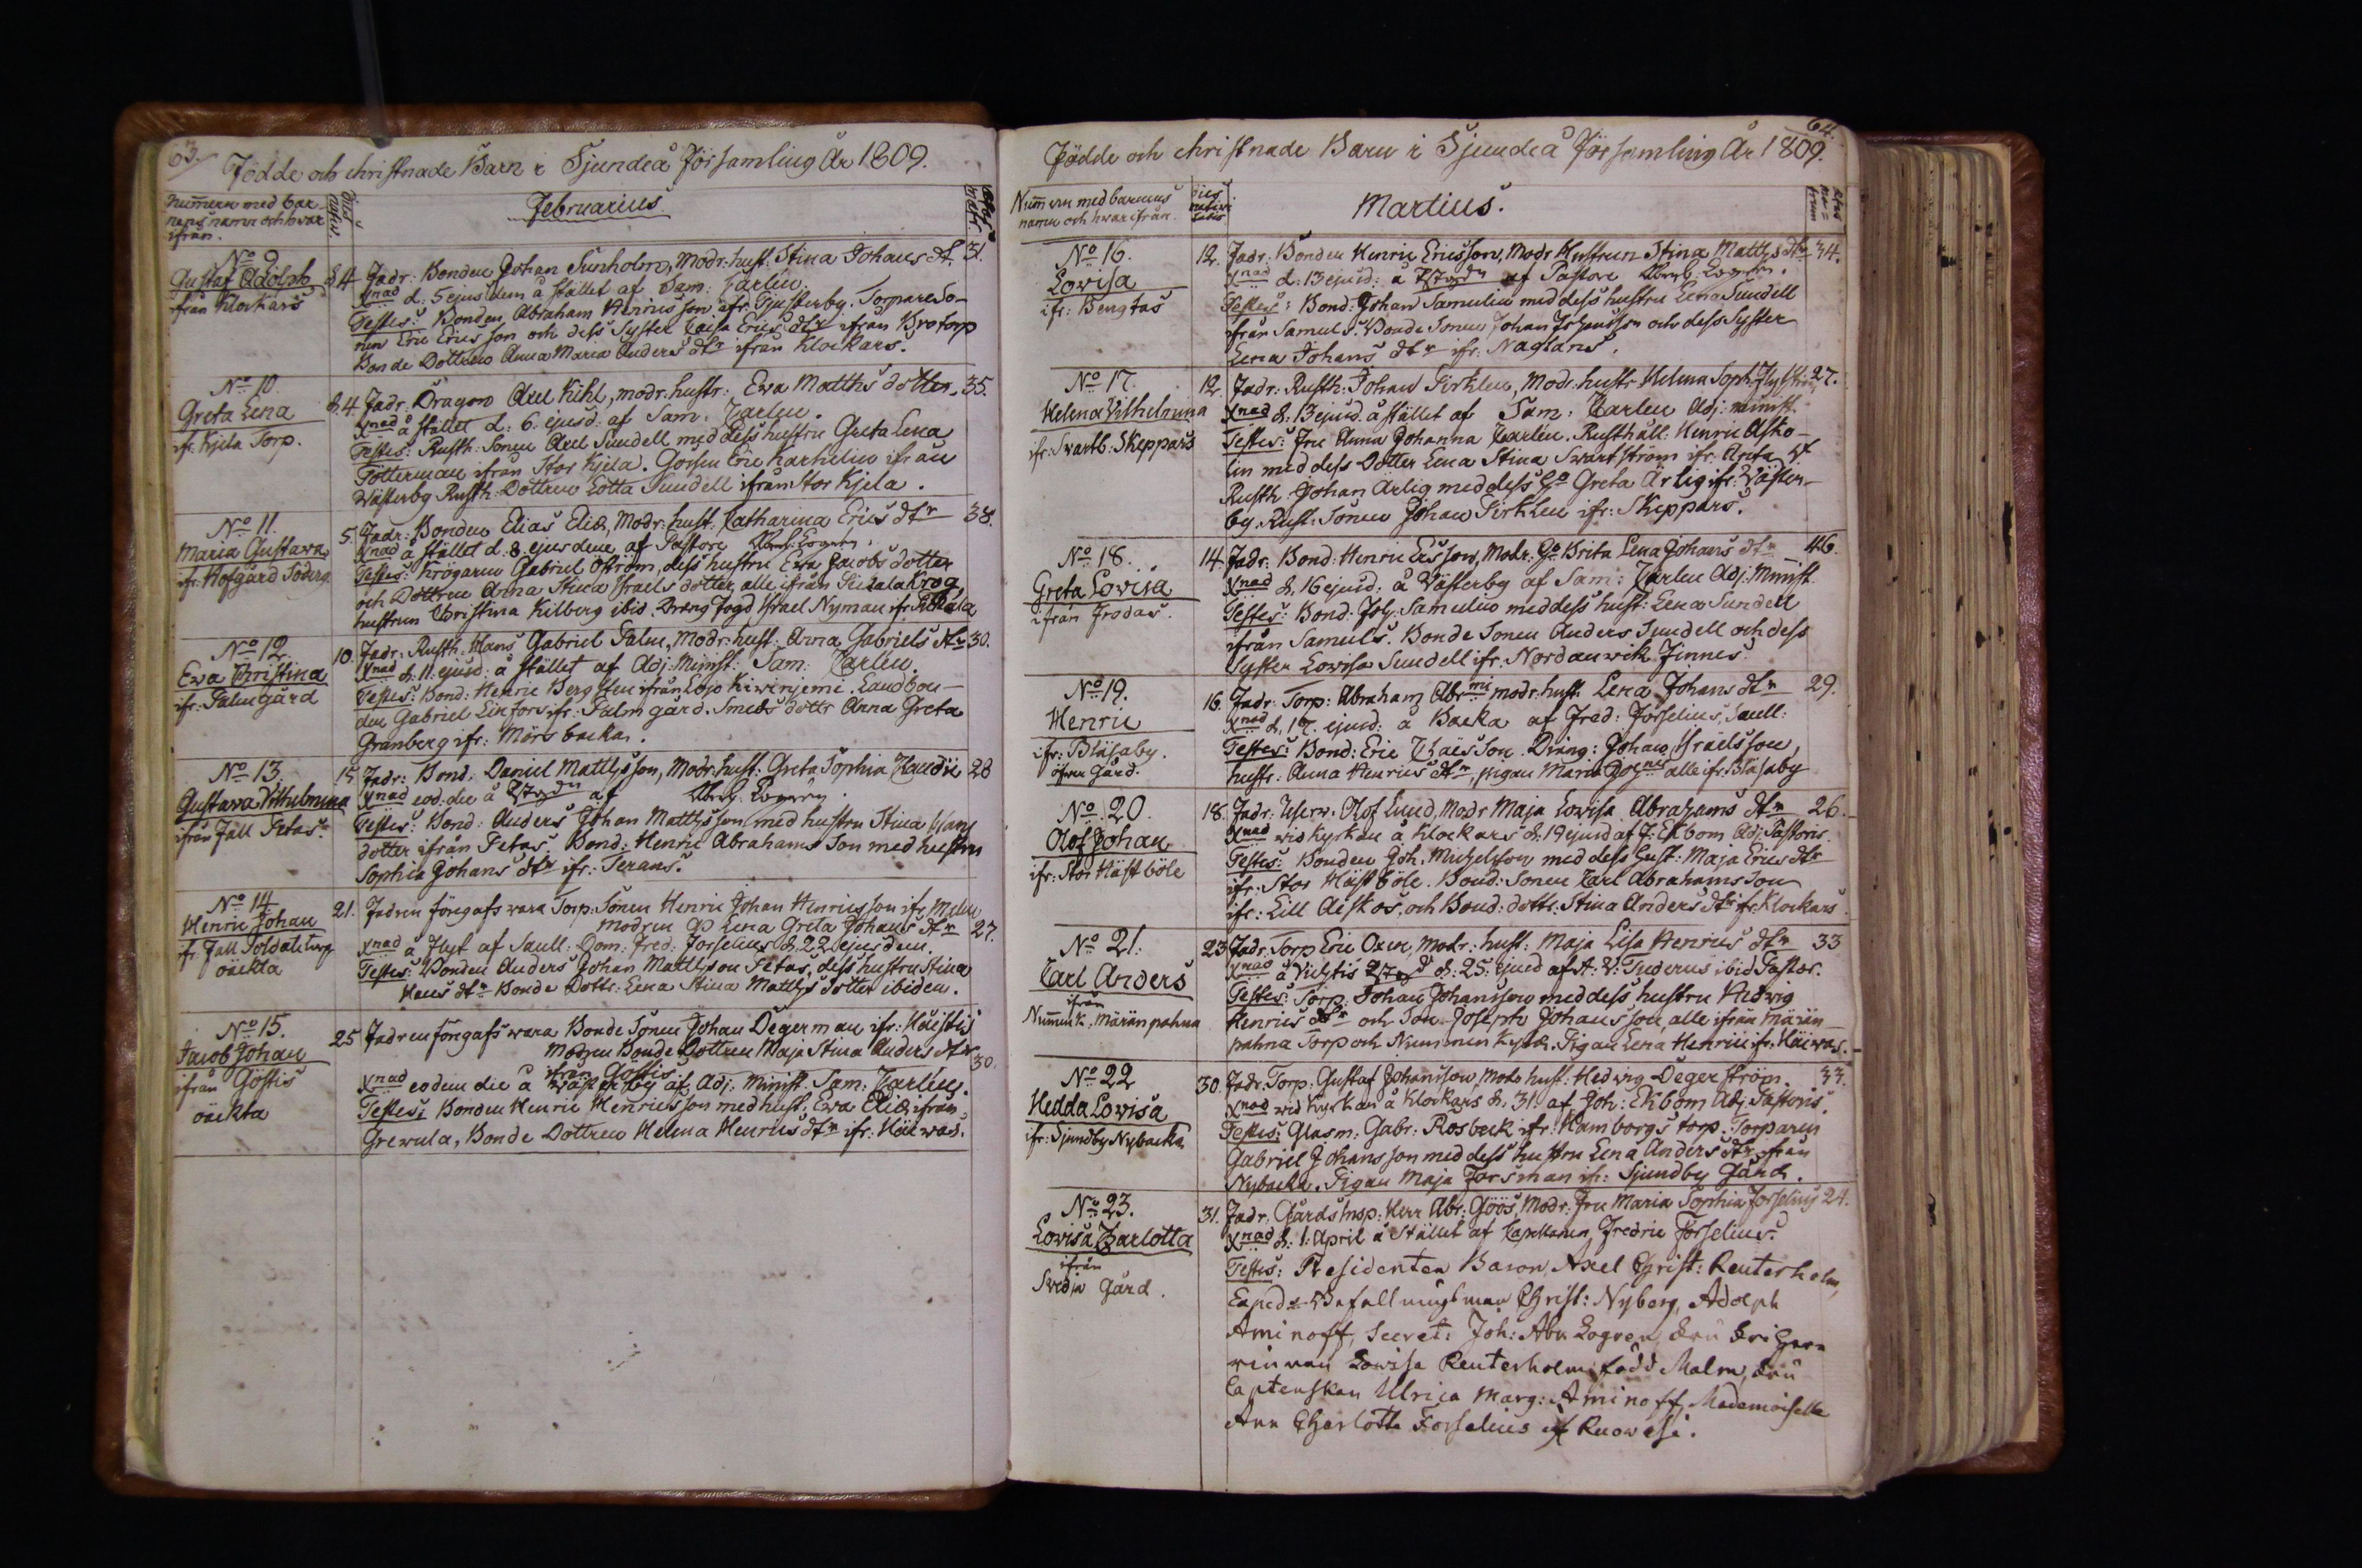 63.
Födde och christnade Barn i Sjundeå Församling År 1809.
Numern med bar-
nens namn och hvar
ifrån.
Februarius
No 9
Gustaf Adolph
ifrån Klockars
d. 4. Fadr: Bonden Johan Sunholm, Modr: hust: Stina Johans dr. 31.
Xnad d: 5 ejusdem å stället af Sam: Carlén.
Testes: Bonden Abraham Henrics son ifr: Gjusterby. Torpare So-
nen Eric Erics son och dess Syster Caisa Erics dtr ifrån Brotorp
Bonde Dottren Anna Maria Anders dtr ifrån Klockars.
No 10
Greta Lena
ifr: Kjela Torp.
d. 4. Fadr: Dragon Axel Kihl, modr: hustr: Ewa Matths dotter. 35.
Xnad å stället d: 6. ejusd: af Sam: Carlén.
Testes: Rusth: Sonen Axel Sundell med dess hustru Greta Lena
Totterman ifrån Stor Kjela. Gossen Eric Karhelin ifrån
Wästerby Rusth: Dottren Lotta Sundell ifrån Stor Kjela.
No 11
Maria Gustava
ifr: Hofgård Söderg.
5. Fadr: Bonden Elias Eliæ, Modr: hust: Catharina Erics dtr 38.
Xnad å stället d. 8. ejusdem af Pastore
Testes: Krögaren Gabriel Öström, dess hustru Ewa Jacobs dotter
och Dottren Anna Stina Israels dotter, alle ifrån Krog,
hustrun Christina Kilberg ibid. Dräng Fogd Israel Nyman ifr:
No 12.
Ewa Christina
ifr: Palmgård
10. Fadr: Rusth: Hans Gabriel Palm, Modr: hust: Anna Gabriels dtr 30.
Xnad d. 11. ejusd: å stället af Adj: Minist: Sam: Carlén.
Testes: Bond: Henric Bergsten ifrån Lojo Kiwinjemi. Landbon-
den Gabriel Linfors ifr: Palmgård. Smeds dottr Anna Greta
Granberg ifr: Mörsbacka.
No 13.
Gustava Vilhelmina
ifrån Fäll Petas
15 Fadr: Bond: Daniel Matthsson, Modr: hust: Greta Sophia 28
Xnad eod: die å af
Testes: Bond: Anders Johan Matthsson med hustru Stina Hans
dotter ifrån Petas. Bond: Henric Abrahams Son med hustru
Sophia Johans dtr ifr: Terans.
No 14
Henric Johan
öäckta
21. Fadren föregafs wara Torp: Sonen Henric Johan Henricsson ifr: Malm
Modren Lena Greta Johans dtr 27.
Xnad å af Saull: Dom: Fred: Forselius d. 22 ejusdem.
Testes: Bonden Anders Johan Mattsson Petas, dess hustru Stina
Hans dtr Bonde Dottr: Lena Stina Matths dotter ibidem.
No 15.
Jacob Johan
ifrån Göstis
öäckta
25 Fadren föregafs wara Bonde Sonen Johan Degerman ifr: Häistis
Modren Bonde Dottren Maja Stina Anders dtr 30.
ifrån Göstis
Xnad eodem die å Wästerby af Adj: Minist: Sam: Carlén.
Testes: Bonden Henric Henricsson med hust: Ewa Eliæ ifrån
Grewula, Bonde Dottren Helena Henrics dtr ifr: Häiwas.
64.
Födde och christnade Barn i Sjundeå Församling År 1809.
Numern med barnens
namn och hwarifrån.
Martius.
No 16.
Lovisa
ifr: Bengtas
12. Fadr: Bonden Henric Ericsson, Modr Hustrun Stina Matths dtr 34.
Xnad d: 13 ejusd: å af Pastore
Testes: Bond: Johan Samulin med dess hustru Lena Sundell
ifrån Samuls. Bonde Sonen Johan Johansson och dess Syster
Lena Johans dtr ifr: Naglans.
No 17.
Helena Vilhelmina
ifr: Svartb. Skeppars
12. Fadr: Rusth: Johan Sirklen, Modr: hustr Helena Soph: 27.
Xnad d. 13 ejusd. å stället af Sam: Carlén Adj: minist.
Testes: Fru Anna Johanna Carlén. Rusthåll: Henric Asko-
lin med dess Dotter Lena Stina Swartström ifr:
Rusth: Johan Ärlig med dess Greta Ärlig ifr: Wäster-
by. Rust: Sonen Johan Sirklen ifr: Skeppars.
No 18.
Greta Lovisa
ifrån Frodas.
14. Fadr: Bond: Henric Ersson, Modr: Brita Lena Johans dtr 46.
Xnad d. 16 ejusd: å Wästerby af Sam: Carlén Adj: Minist.
Testes: Bond: Joh: Samulin med dess hust: Lena Sundell
ifrån Samuels. Bonde Sonen Anders Sundell och dess
Syster Lovisa Sundell ifr: Nordanwik Finnes.
No 19.
Henric
ifr: Bläsaby.
öfwer Gård.
16. Fadr: Torp: Abraham Abrmi modr: hust: Lena Johans dtr 29.
Xnad d. 17. ejusd: å Backa af Fred: Forselius, Saull:
Testes: Bond: Eric Son. Dräng: Johan Israelsson,
hustr: Anna Henrics dtr, pigan Maria alle ifr: Bläsaby
No 20.
Olof Johan
ifr: Stor Häst böle
18. Fadr: Olof Lund, Modr Maja Lowisa Abrahams dtr 26.
Xnad wid kyrkan å Klockars d. 19 ejusd af J: Ekbom Adj: Pastoris.
Testes: Bonden Joh: Michelsson med dess hust: Maja Erics dtr
ifr: Stor Häst böle. Bond: Sonen Carl Abrahams Son
ifr: Lill Aiskos, och Bond: dottr: Stina Anders dtr ifr: Klockars.
No 21.
Carl Anders
ifrån
Numink. märän pahna
23 Fadr: Torp Eric Oxen, Modr: hust: Maja Lisa Henrics dtr 33
Xnad å Vichtis d: 25: ejusd af A: V: ibid Pastor.
Testes: Torp: Johan Johansson med dess hustru Hedwig
Henrics dtr och Son Joseph Johansson, alle ifrån märän-
pahna Torp och Nummen kylä. Pigan Lena Henrici ifr: Häiwas.
No 22
Hedda Lovisa
ifr: Sjundby Nybacka
30. Fadr: Torp: Gustaf Johansson Modr hust: Hedwig Degerström. 33.
Xnad wid Kyrkan å Klockars d. 31. af Joh: Ekbom Adj: Pastoris.
Testes: Glasm: Gabr: Rosbeck ifr: Hamborgs torp. Torparen
Gabriel Johansson med dess hustru Lena Anders dtr ifrån
Nybacka. Pigan Maja Forsman ifr: Sjundby Gård.
No 23.
Lovisa Carlotta
ifrån
Svidja Gård.
31. Fadr: Gårds Insp: Herr Abr: Göös, Modr: Fru Maria Sophia Forselius 24.
Xnad d: 1. April å Stället af Capellanen Fredric Forselius.
Testes: Presidenten Baron Axel Christ: Reuterholm,
Befallningsman Christ: Nyberg, Adolph
Aminoff, Secret: Joh: Abr: Logren, Fru Frihere
rinnan Lowisa Reuterholm född Malm, Fru
Captenskan Ulrica Marg: Aminoff, Mademoiselle
Ann Charlotta Forselius af Ruowesi.